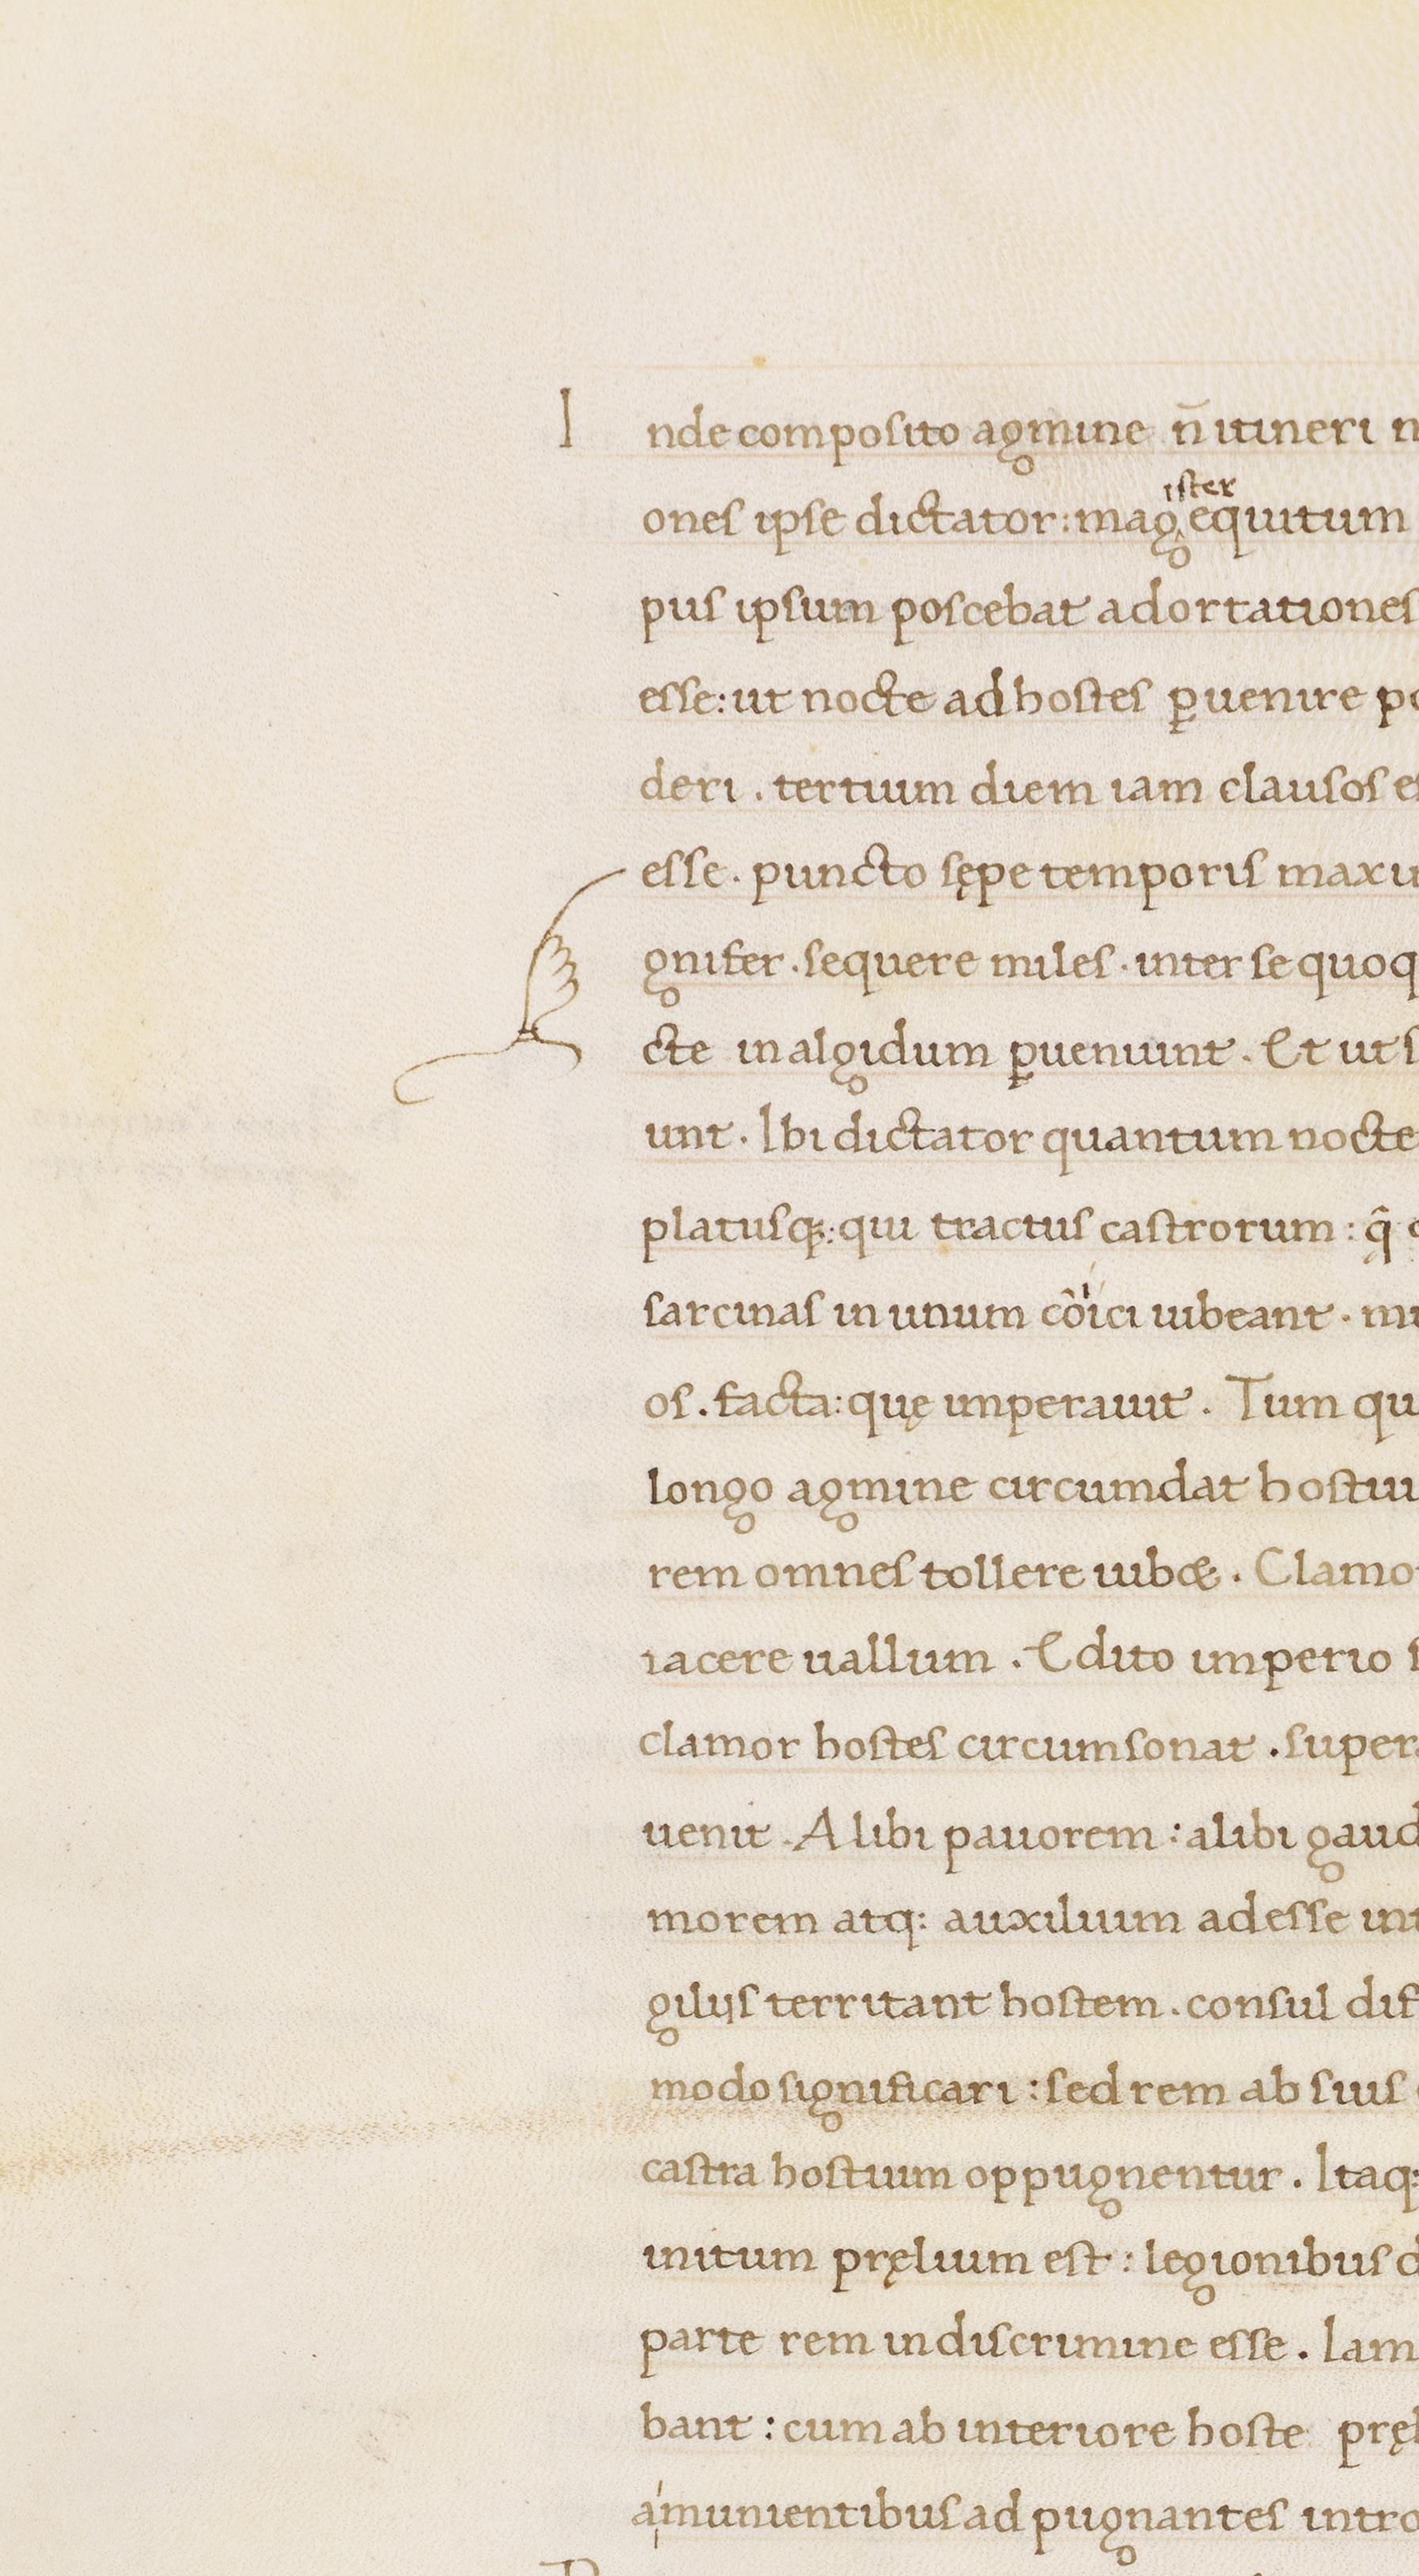 Inde composito agmine n̄ itineri
ones ipse dictator: mag equitum
ister
pus ipsum poscebat adortationes
esse: ut nocte ad hostes ꝑuenire
deri. tertium diem iam clausos
esse. puncto sępe temporis
gnifer. sequere miles. inter se
cte in algidum ꝑueniunt. Et ut
unt. Ibi dictator quantum nocte
platusq;: qui tractus castrorum: q̂
sarcinas in unum cô'ici iubeant.
os. facta: quę imperauit. Tum
longo agmine circumdat
rem omnes tollere iubæ. Clamo
iacere uallum. Edito imperio
clamor hostes circumsonat. super
uenit. Alibi pauorem: alibi gaud
morem atq: auxilium adesse
gilijs territant hostem. consul
modo significari: sed rem ab suis
castra hostium oppugnentur. Itaq:
initum pręlium est: legionibus
parte rem in discrimine esse. Iam
bant: cum ab interiore hoste
a munientibus ad pugnantes intro